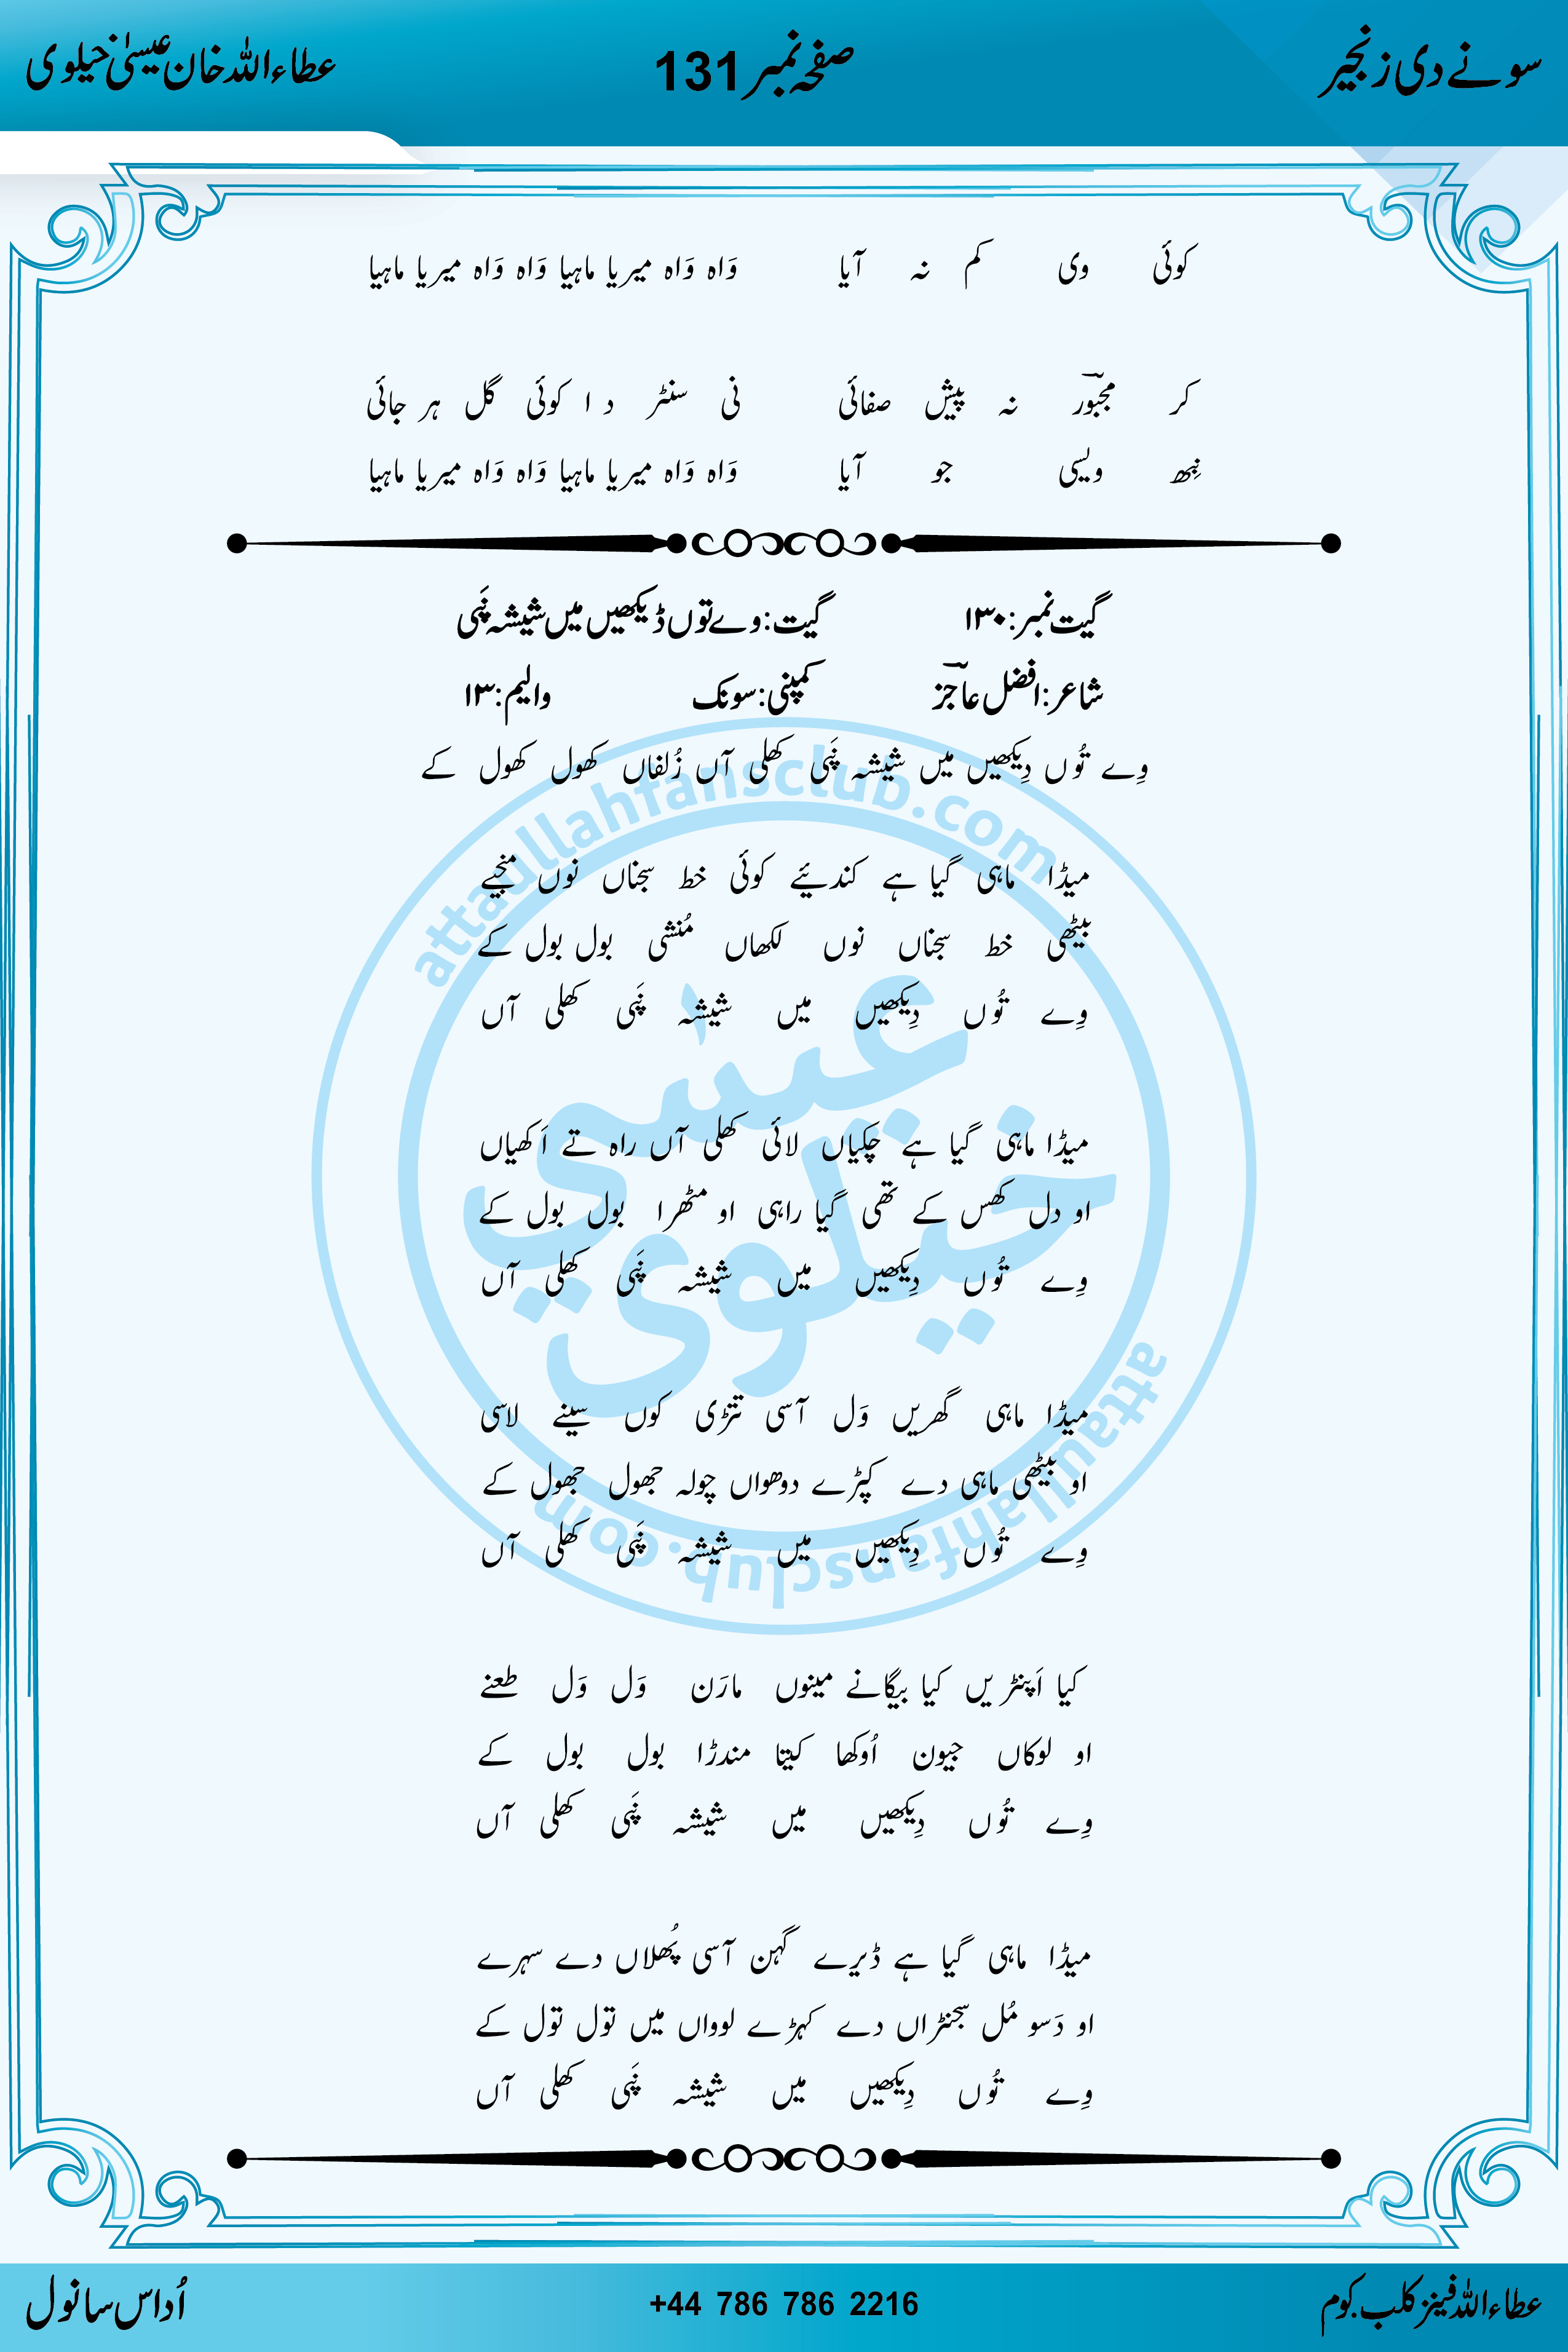 سونے دی زنجیر صفحہ نمبر 131 عطاء اللہ خان عیسیٰ خیلوی
کوئی وی کم نہ آیا وَاہ وَاہ میریا ماہیا وَاہ وَاہ میریا ماہیا
کر مجبورؔ نہ پیش صفائی نی سنٹر دا کوئی گل ہر جائی
نِبھ ویسی جو آیا وَاہ وَاہ میریا ماہیا وَاہ وَاہ میریا ماہیا
گیت نمبر: ۱۳۰ گیت: وے توں ڈیکھیں میں شیشہ پَنی
شاعر: افضل عاجزؔ کمپنی: سونک والیم: ۱۳
وِے تُوں دِیکھیں میں شیشہ پَنی کھلی آں زُلفاں کھول کھول کے
میڈا ماہی گیا ہے کندئیے کوئی خط سجناں نوں منجیے
بیٹھی خط سجناں نوں لکھاں مُنشی بول بول کے
وِے تُوں دِیکھیں میں شیشہ پَنی کھلی آں
میڈا ماہی گیا ہے چکیاں لائی کھلی آں راہ تے اَکھیاں
او دل کھس کے تھی گیا راہی او مٹھرا بول بول کے
وِے تُوں دِیکھیں میں شیشہ پَنی کھلی آں
میڈا ماہی گھریں وَل آسی تتڑی کوں سینے لاسی
او بیٹھی ماہی دے کپڑے دوھواں چولہ جھول جھول کے
وِے تُوں دِیکھیں میں شیشہ پَنی کھلی آں
کیا اَپنڑیں کیا بیگانے مینوں مارَن وَل وَل طعنے
او لوکاں جیون اُوکھا کیتا مندڑا بول بول کے
وِے تُوں دِیکھیں میں شیشہ پَنی کھلی آں
میڈا ماہی گیا ہے ڈیرے گہن آسی پُھلاں دے سہرے
او دَسو مُل سجنڑاں دے کہڑے لوواں میں تول تول کے
وِے تُوں دِیکھیں میں شیشہ پَنی کھلی آں
attaullahfansclub.com
عیسٰی
خیلوی
attaullahfansclub.com
عطاء اللہ فینز کلب. کوم +44 786 786 2216 اُداس سانول